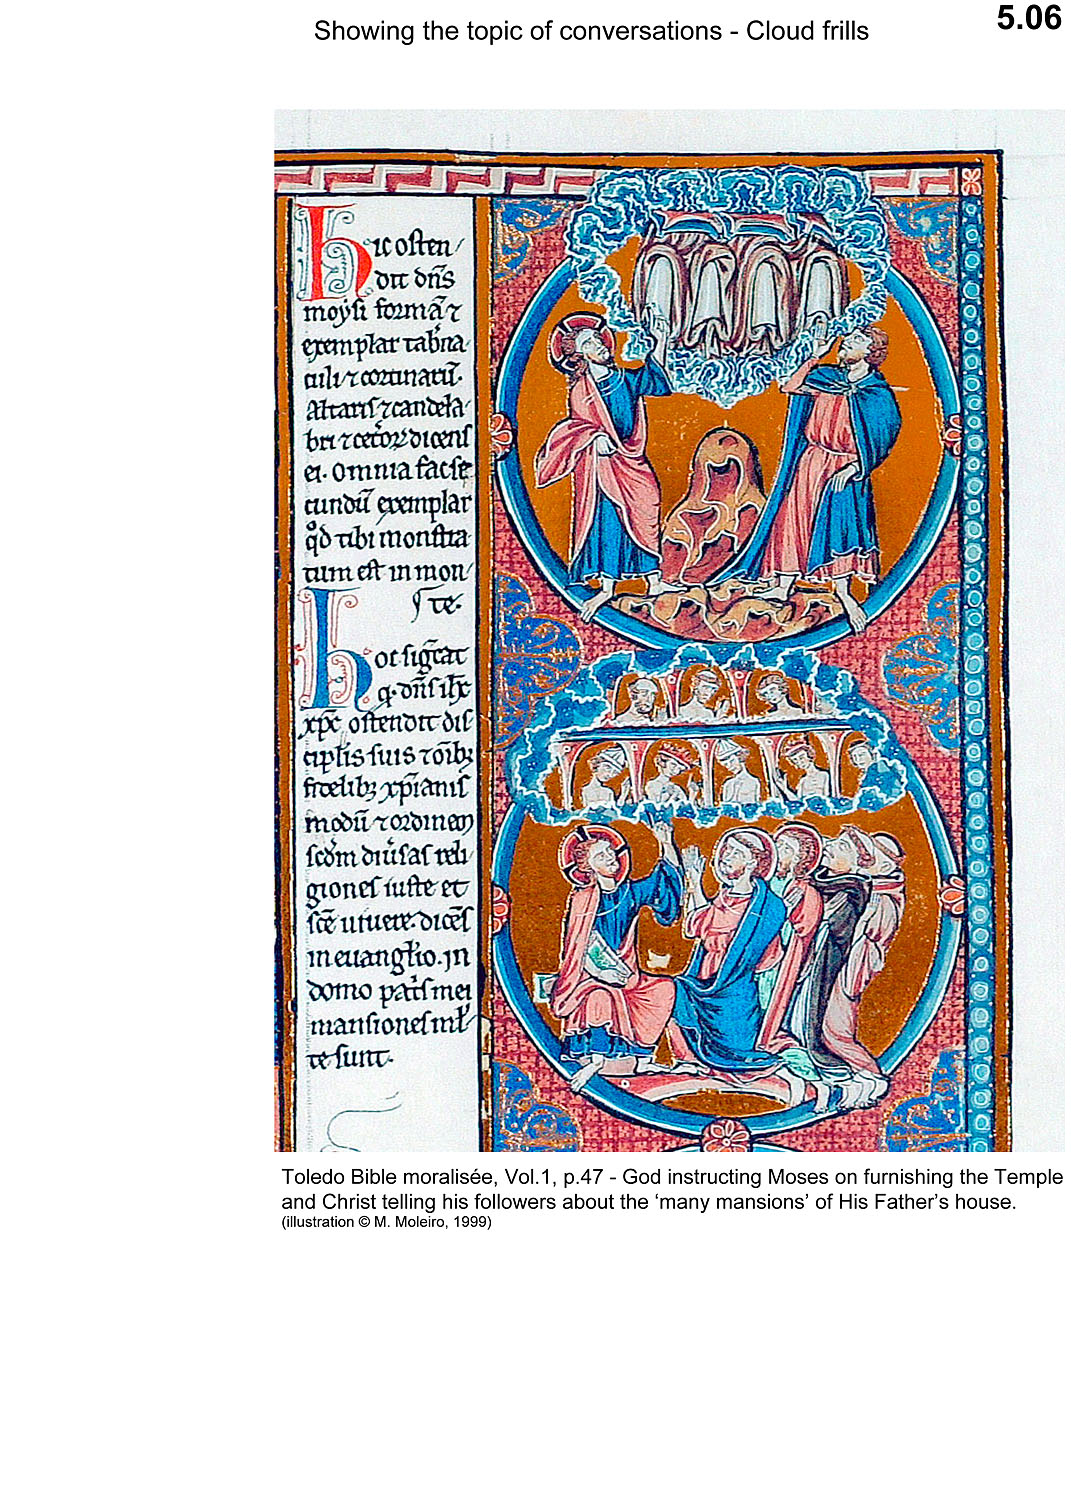 Showing the topic of conversations - Cloud frills
5.06
hic osten/
dit dn̄s
moysi formā ⁊
exemplar tab̄na
culi ⁊ cortinarū.
Altaris ⁊ candela/
bri ⁊ cetorꝝ dicens
ei. omnia fac se
cundū exemplar
qd̄ tibi monstra
tum est in mon/
te.
hoc sig̅cat
q. dn̄s ih̄c
xp̄c ostendit dis
ciplis suis ⁊ oīb;
fidelib; xp̄ianis
modū ⁊ ordinem
scdm diūsas reli/
giones iuste et
scē uiuere. dicēs
in euanglio. in
domo pat̄s mei
mansiones ml̄
te sunt.
Toledo Bible moralisée, Vol.1, p.47 - God instructing Moses on furnishing the Temple
and Christ telling his followers about the ‘many mansions’ of His Father’s house.
(illustration © M. Moleiro, 1999)